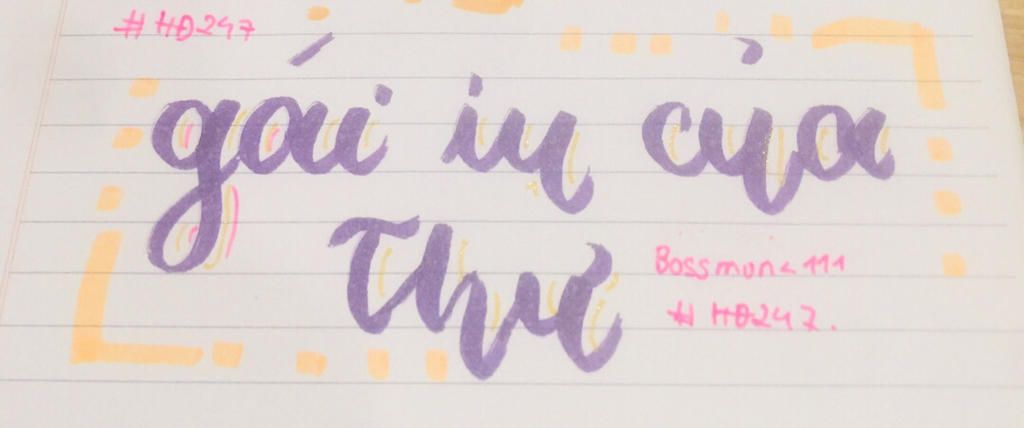 #HĐ247
gái iu của
Thư
Bossmuna111
#HĐ247.